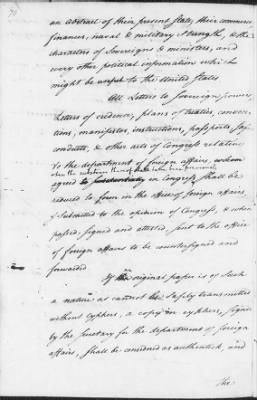 an abstract of their present state, their commerce
finances, naval & military strength, & the
characters of Sovereigns & ministers, and
every other political information which
might be useful to the United States
All Letters to Sovereign powers,
Letters of credence, plans of treaties, conven-
tions, manifestos, instructions, passports, safe
conducts, & other acts of Congress relative
to the department of foreign affairs, when
the substance thereof shall have been previously
agreed to in Congress shall be
reduced to form in the office of foreign affairs,
& Submitted to the opinion of Congress, & when
passed, signed and attested, sent to the office
of foreign affairs to be countersigned and
forwarded.
If the original paper is of Such
a nature as cannot be Safely transmitted
without cyphers, a copy in cyphers, signed
by the Secretary for the department of foreign
affairs, Shall be considered as authentick, and
the